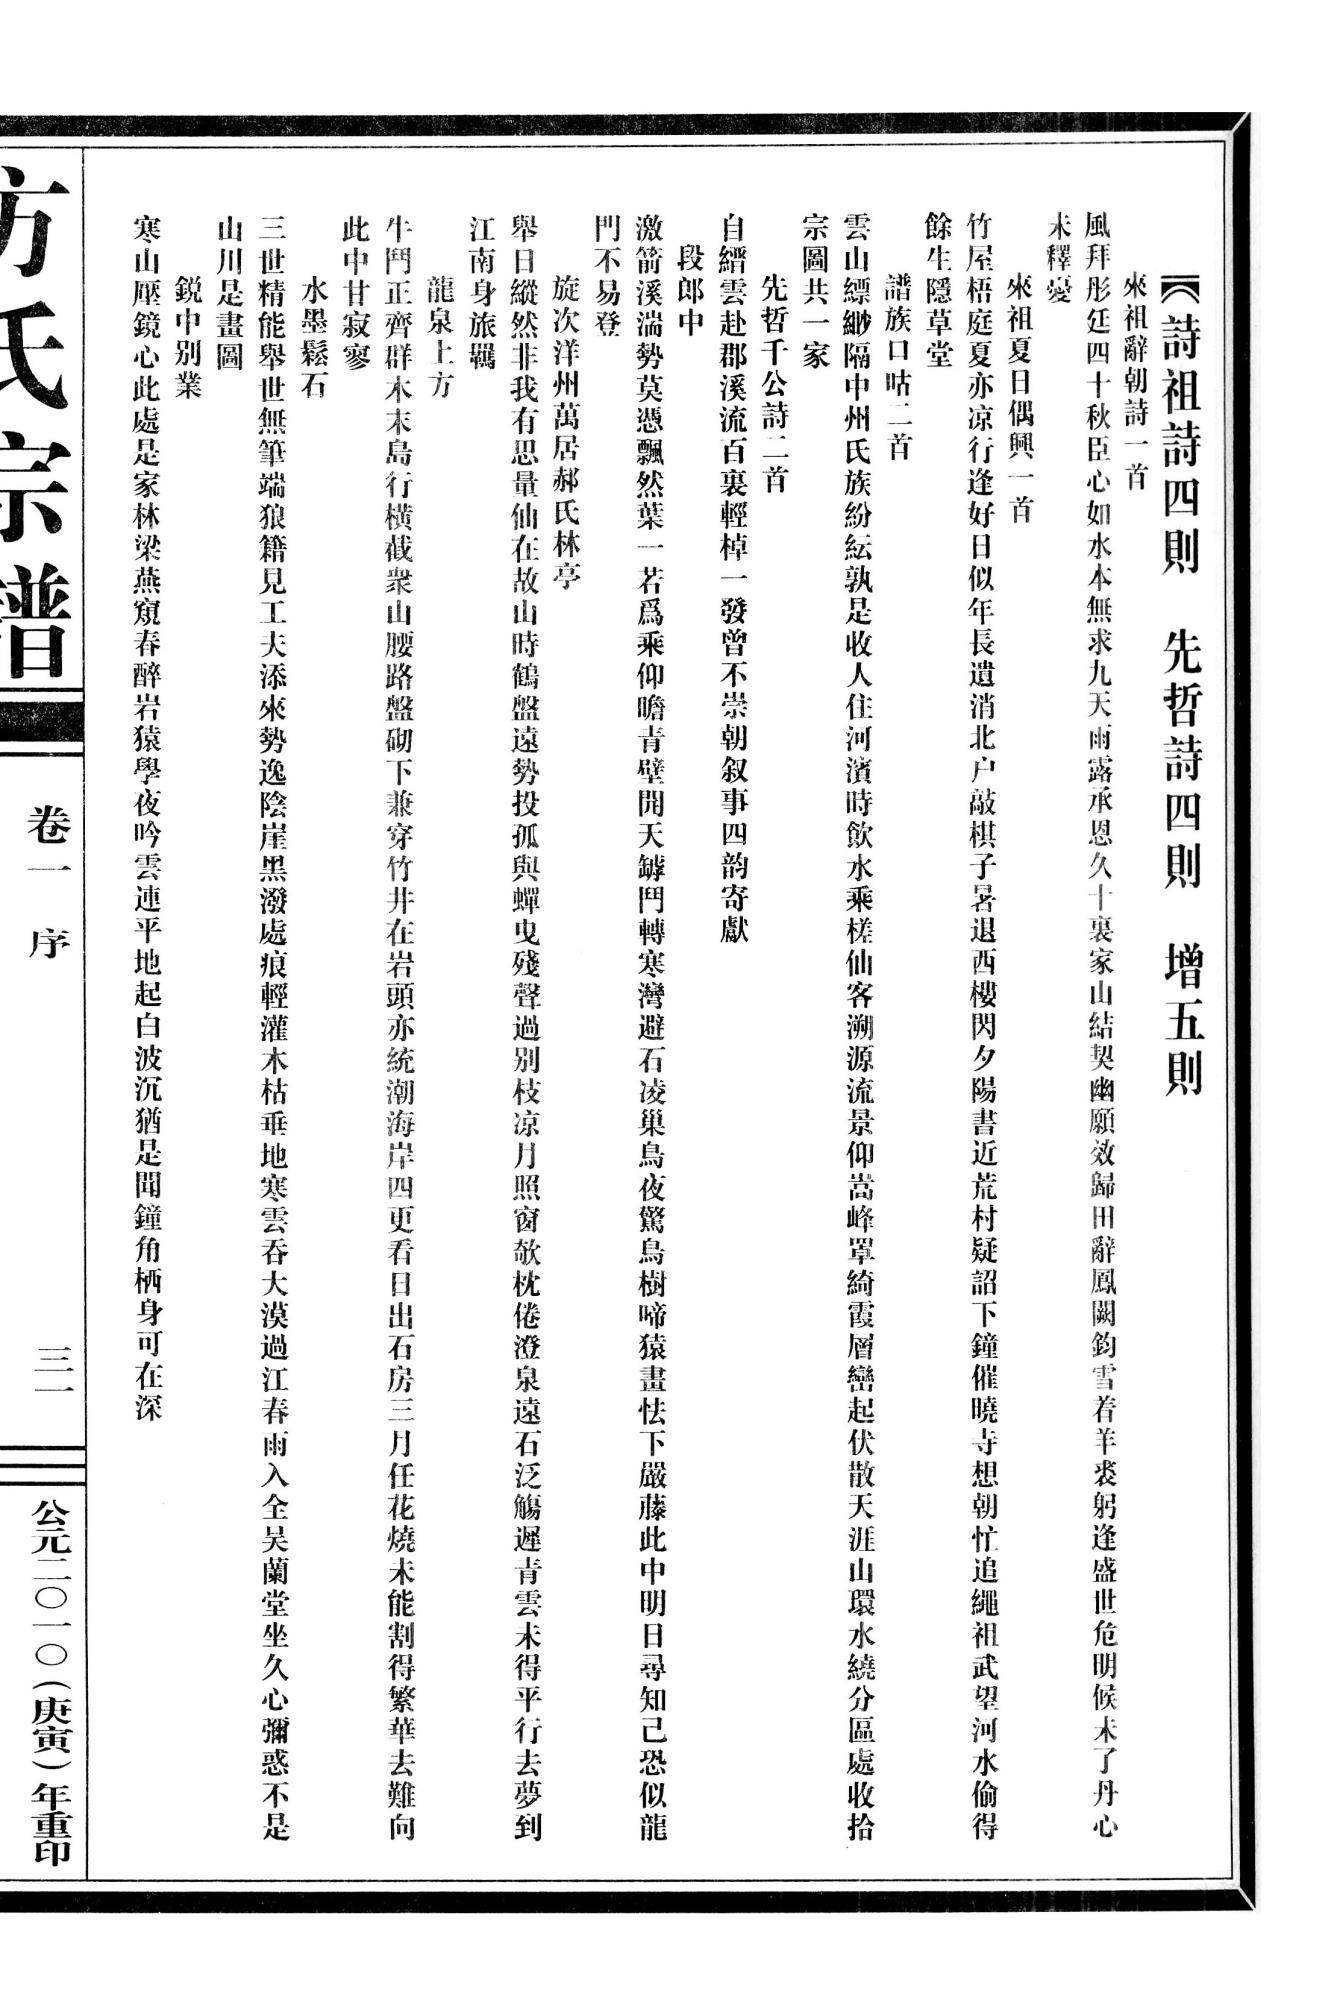 《詩祖詩四則　先哲詩四則　增五則
來祖辭朝詩一首
風拜彤廷四十秋臣心如水本無求九天雨露承恩久十裏家山結契幽願效歸田辭鳳闕鈞雪着羊裘躬逢盛世危明候未了丹心
未釋憂
來祖夏日偶興一首
竹屋梧庭夏亦凉行逢好日似年長遺消北户敲棋子暑退西樓閃夕陽書近荒村疑詔下鐘催曉寺想朝忙追繩祖武望河水偷得
餘生隱草堂
譜族口咕二首
雲山縹緲隔中州氏族紛紜孰是收人住河濱時飲水乘槎仙客溯源流景仰嵩峰罩綺霞層巒起伏散天涯山環水繞分區處收拾
宗圖共一家
先哲千公詩二首
自縉雲赴郡溪流百裏輕棹一發曾不崇朝叙事四韵寄獻
段郎中
激箭溪湍勢莫憑飄然葉一若爲乘仰瞻青壁開天罅鬥轉寒灣避石凌巢鳥夜驚鳥樹啼猿晝怯下嚴藤此中明日尋知己恐似龍
門不易登
旋次洋州萬居郝氏林亭
舉日縱然非我有思量仙在故山時鶴盤遠勢投孤與蟬曳殘聲過别枝凉月照窗欹枕倦澄泉遠石泛觴遲青雲未得平行去夢到
江南身旅羈
龍泉上方
牛鬥正齊群木末島行橫截衆山腰路盤砌下兼穿竹井在岩頭亦統潮海岸四更看日出石房三月任花燒未能割得繁華去難向
此中甘寂寥
水墨鬆石
三世精能舉世無筆端狼籍見工夫添來勢逸陰崖黑潑處痕輕灌木枯垂地寒雲吞大漠過江春雨入全吴蘭堂坐久心彌惑不是
山川是畫圖
鋭中别業
寒山壓鏡心此處是家林梁燕窺春醉岩猿學夜吟雲連平地起白波沉猶是聞鐘角栖身可在深
方氏宗譜
卷一　序
三一
公元二〇一〇（庚寅）年重印